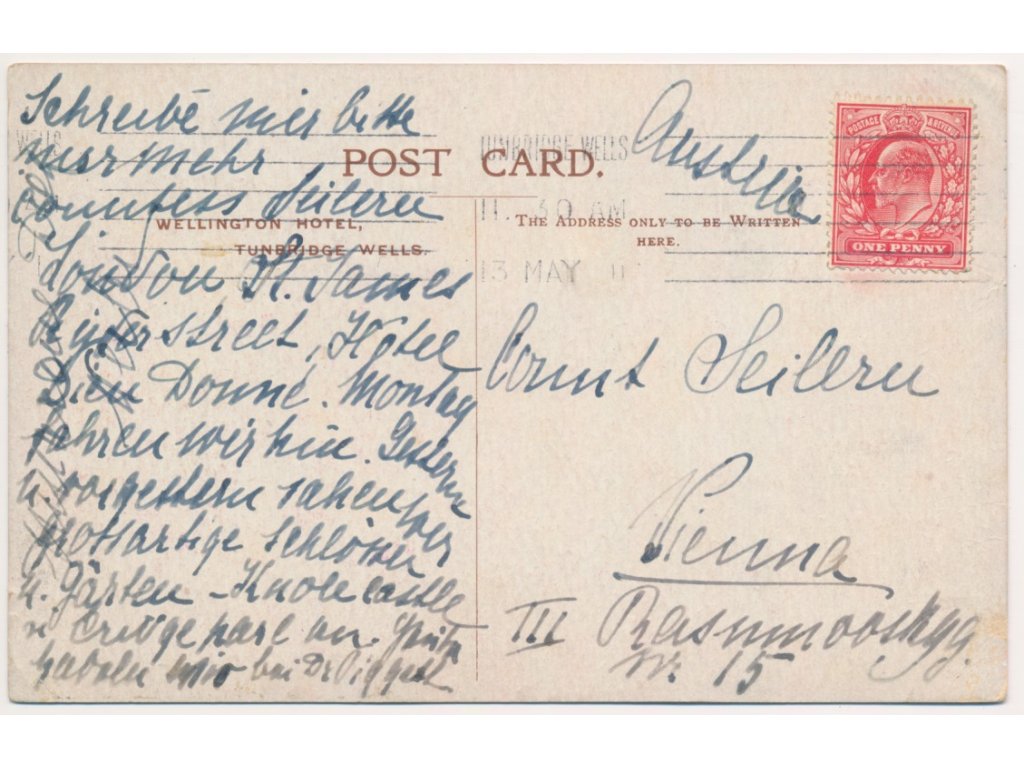 Schreibe mir bitte
nur mehr
Countess Seilern
London St. James
Ryder Street, Hotel
Dieu Donné. Montag
fahren wir hin. Gestern
u. vorgestern sahen wir
grossartige Schlösser
u. Gärten - Knole castle
u.
bei Dr
POST CARD.
WELLINGTON HOTEL,
TUNBRIDGE WELLS.
THE ADDRESS ONLY TO BE WRITTEN
HERE.
WELLS
TUNBRIDGE WELLS
11. 30 AM
13 MAY 11
Austria
POSTAGE & REVENUE
ONE PENNY
Count Seilern
Vienna
III Rasumovskyg.
Nr. 15